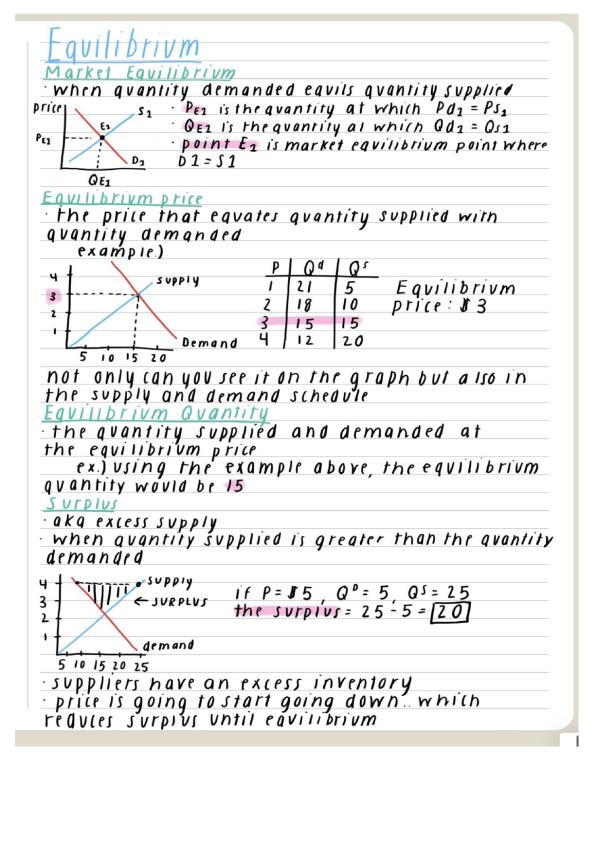 Equilibrium
Market Equilibrium
· when quantity demanded equils quantity supplied
price
S1
E1
PE1
D1
QE1
· PE1 is the quantity at which Pd1 = Ps1
· QE1 is the quantity at which Qd1 = Qs1
· point E1 is market equilibrium point where
D1 = S1
Equilibrium price
· the price that equates quantity supplied with
quantity demanded
example.)
4
3
2
1
supply
Demand
5 10 15 20
P | Qd | Qs
1 | 21 | 5
2 | 18 | 10
3 | 15 | 15
4 | 12 | 20
Equilibrium
price: $3
not only can you see it on the graph but also in
the supply and demand schedule
Equilibrium Quantity
· the quantity supplied and demanded at
the equilibrium price
ex.) using the example above, the equilibrium
quantity would be 15
Surplus
· aka excess supply
· when quantity supplied is greater than the quantity
demanded
4
3
2
1
supply
← SURPLUS
demand
5 10 15 20 25
if P = $5, QD = 5, QS = 25
the surplus = 25 - 5 = 20
· suppliers have an excess inventory
· price is going to start going down.. which
reduces surplus until equilibrium